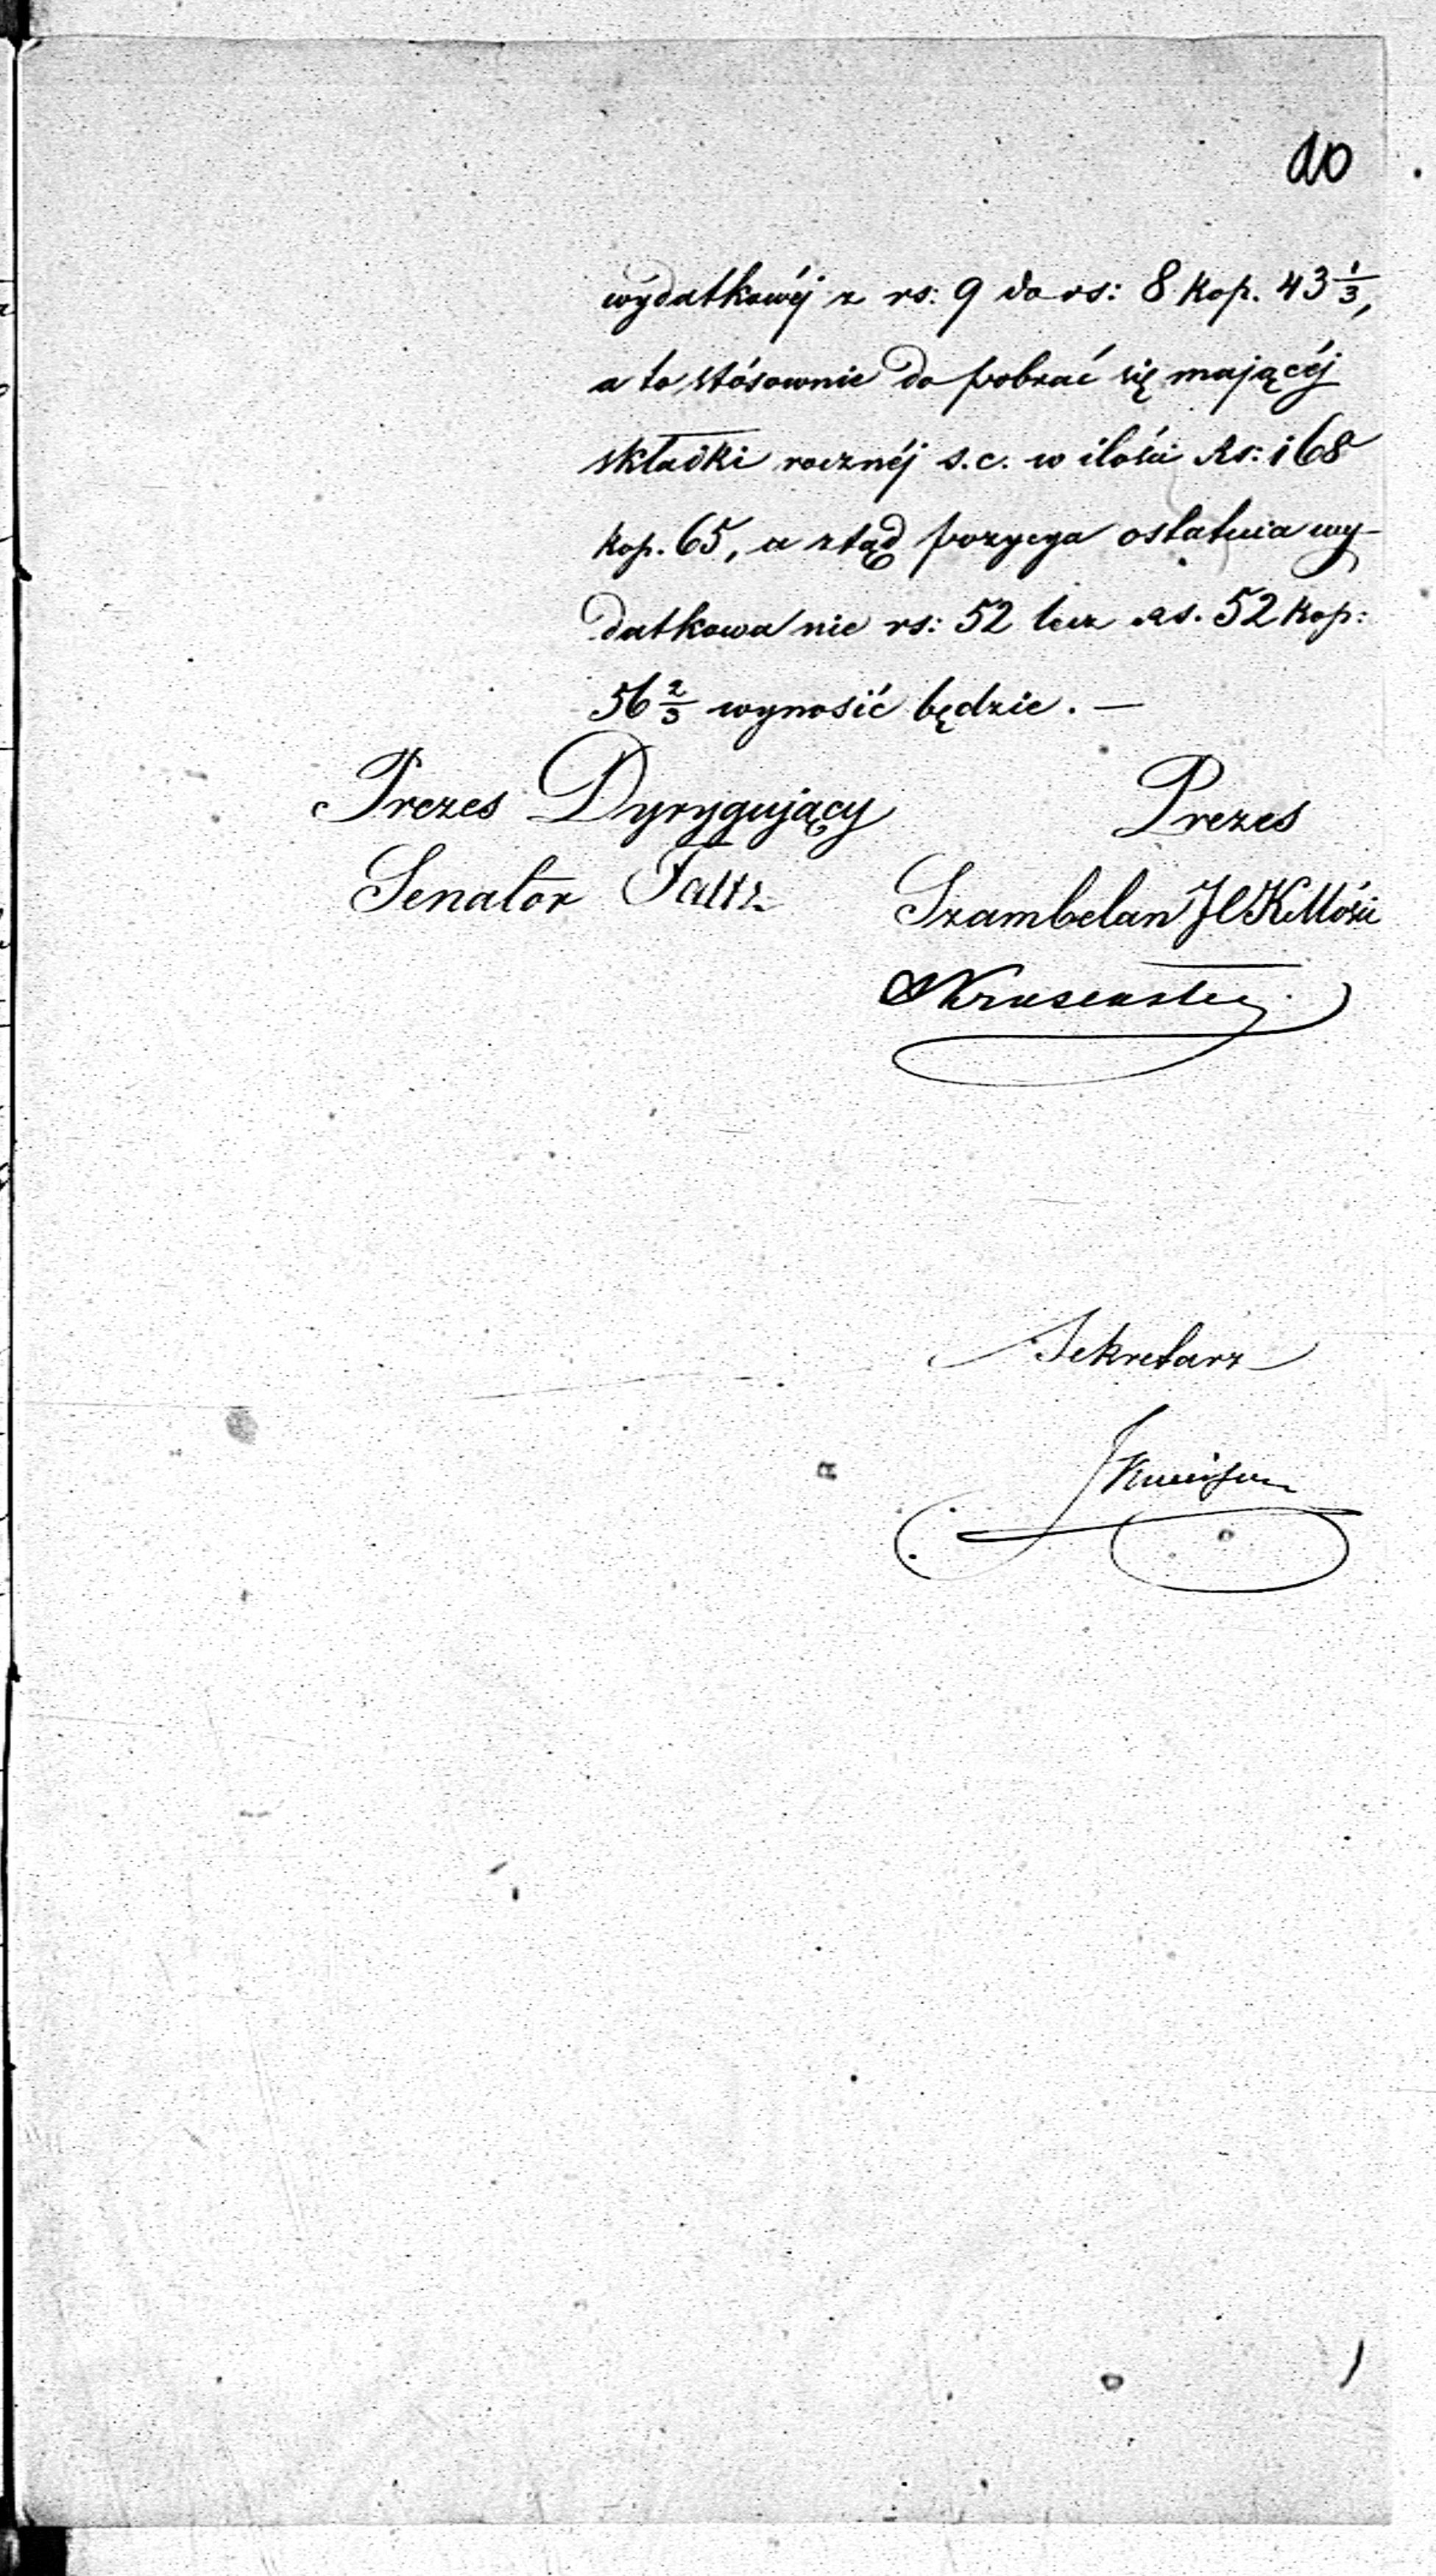 10
wydatkowéj z rs: 9 do rs: 8 kop. 43 1/3,
a to stósownie do pobrać się mającéj
składki rocznéj s. c. w ilości Rs: 168
kop. 65, a ztąd pozycya ostatnia wy-
datkowa nie rs: 52 lecz Rs. 52 kop:
56 2/3 wynosić będzie. —
Prezes Dyrygujący
Senator Faltz
Prezes
Szambelan JCKMości
Sekretarz